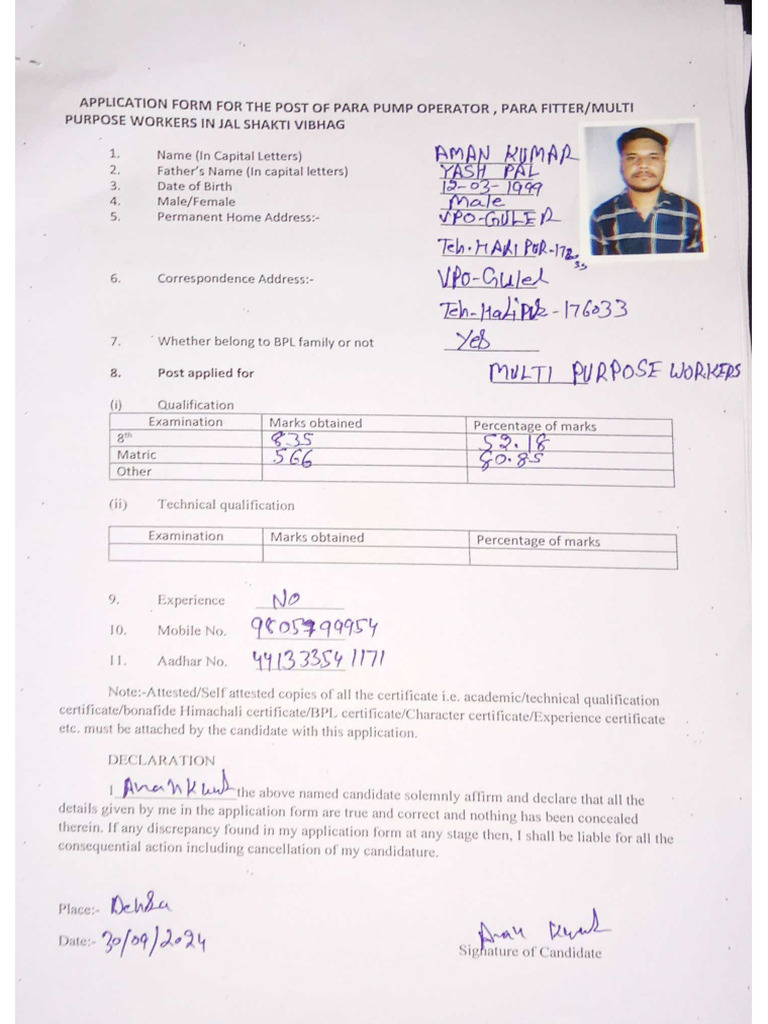 APPLICATION FORM FOR THE POST OF PARA PUMP OPERATOR , PARA FITTER/MULTI
PURPOSE WORKERS IN JAL SHAKTI VIBHAG
1. Name (In Capital Letters) AMAN KUMAR
2. Father's Name (In capital letters) YASH PAL
3. Date of Birth 12-03-1999
4. Male/Female Male
5. Permanent Home Address:- VPO-GULER
Teh.HARIPUR-
6. Correspondence Address:- VPO-Guler
Teh-Haripur-176033
7. Whether belong to BPL family or not Yes
8. Post applied for MULTI PURPOSE WORKERS
(i) Qualification
Examination Marks obtained Percentage of marks
8th 835 52.18
Matric 566 80.85
Other
(ii) Technical qualification
Examination Marks obtained Percentage of marks
9. Experience No
10. Mobile No. 9805799954
11. Aadhar No. 441333541171
Note:-Attested/Self attested copies of all the certificate i.e. academic/technical qualification
certificate/bonafide Himachali certificate/BPL certificate/Character certificate/Experience certificate
etc. must be attached by the candidate with this application.
DECLARATION
I Aman Kumar the above named candidate solemnly affirm and declare that all the
details given by me in the application form are true and correct and nothing has been concealed
therein. If any discrepancy found in my application form at any stage then, I shall be liable for all the
consequential action including cancellation of my candidature.
Place:- Dehra
Date:- 30/09/2024
Aman Kumar
Signature of Candidate